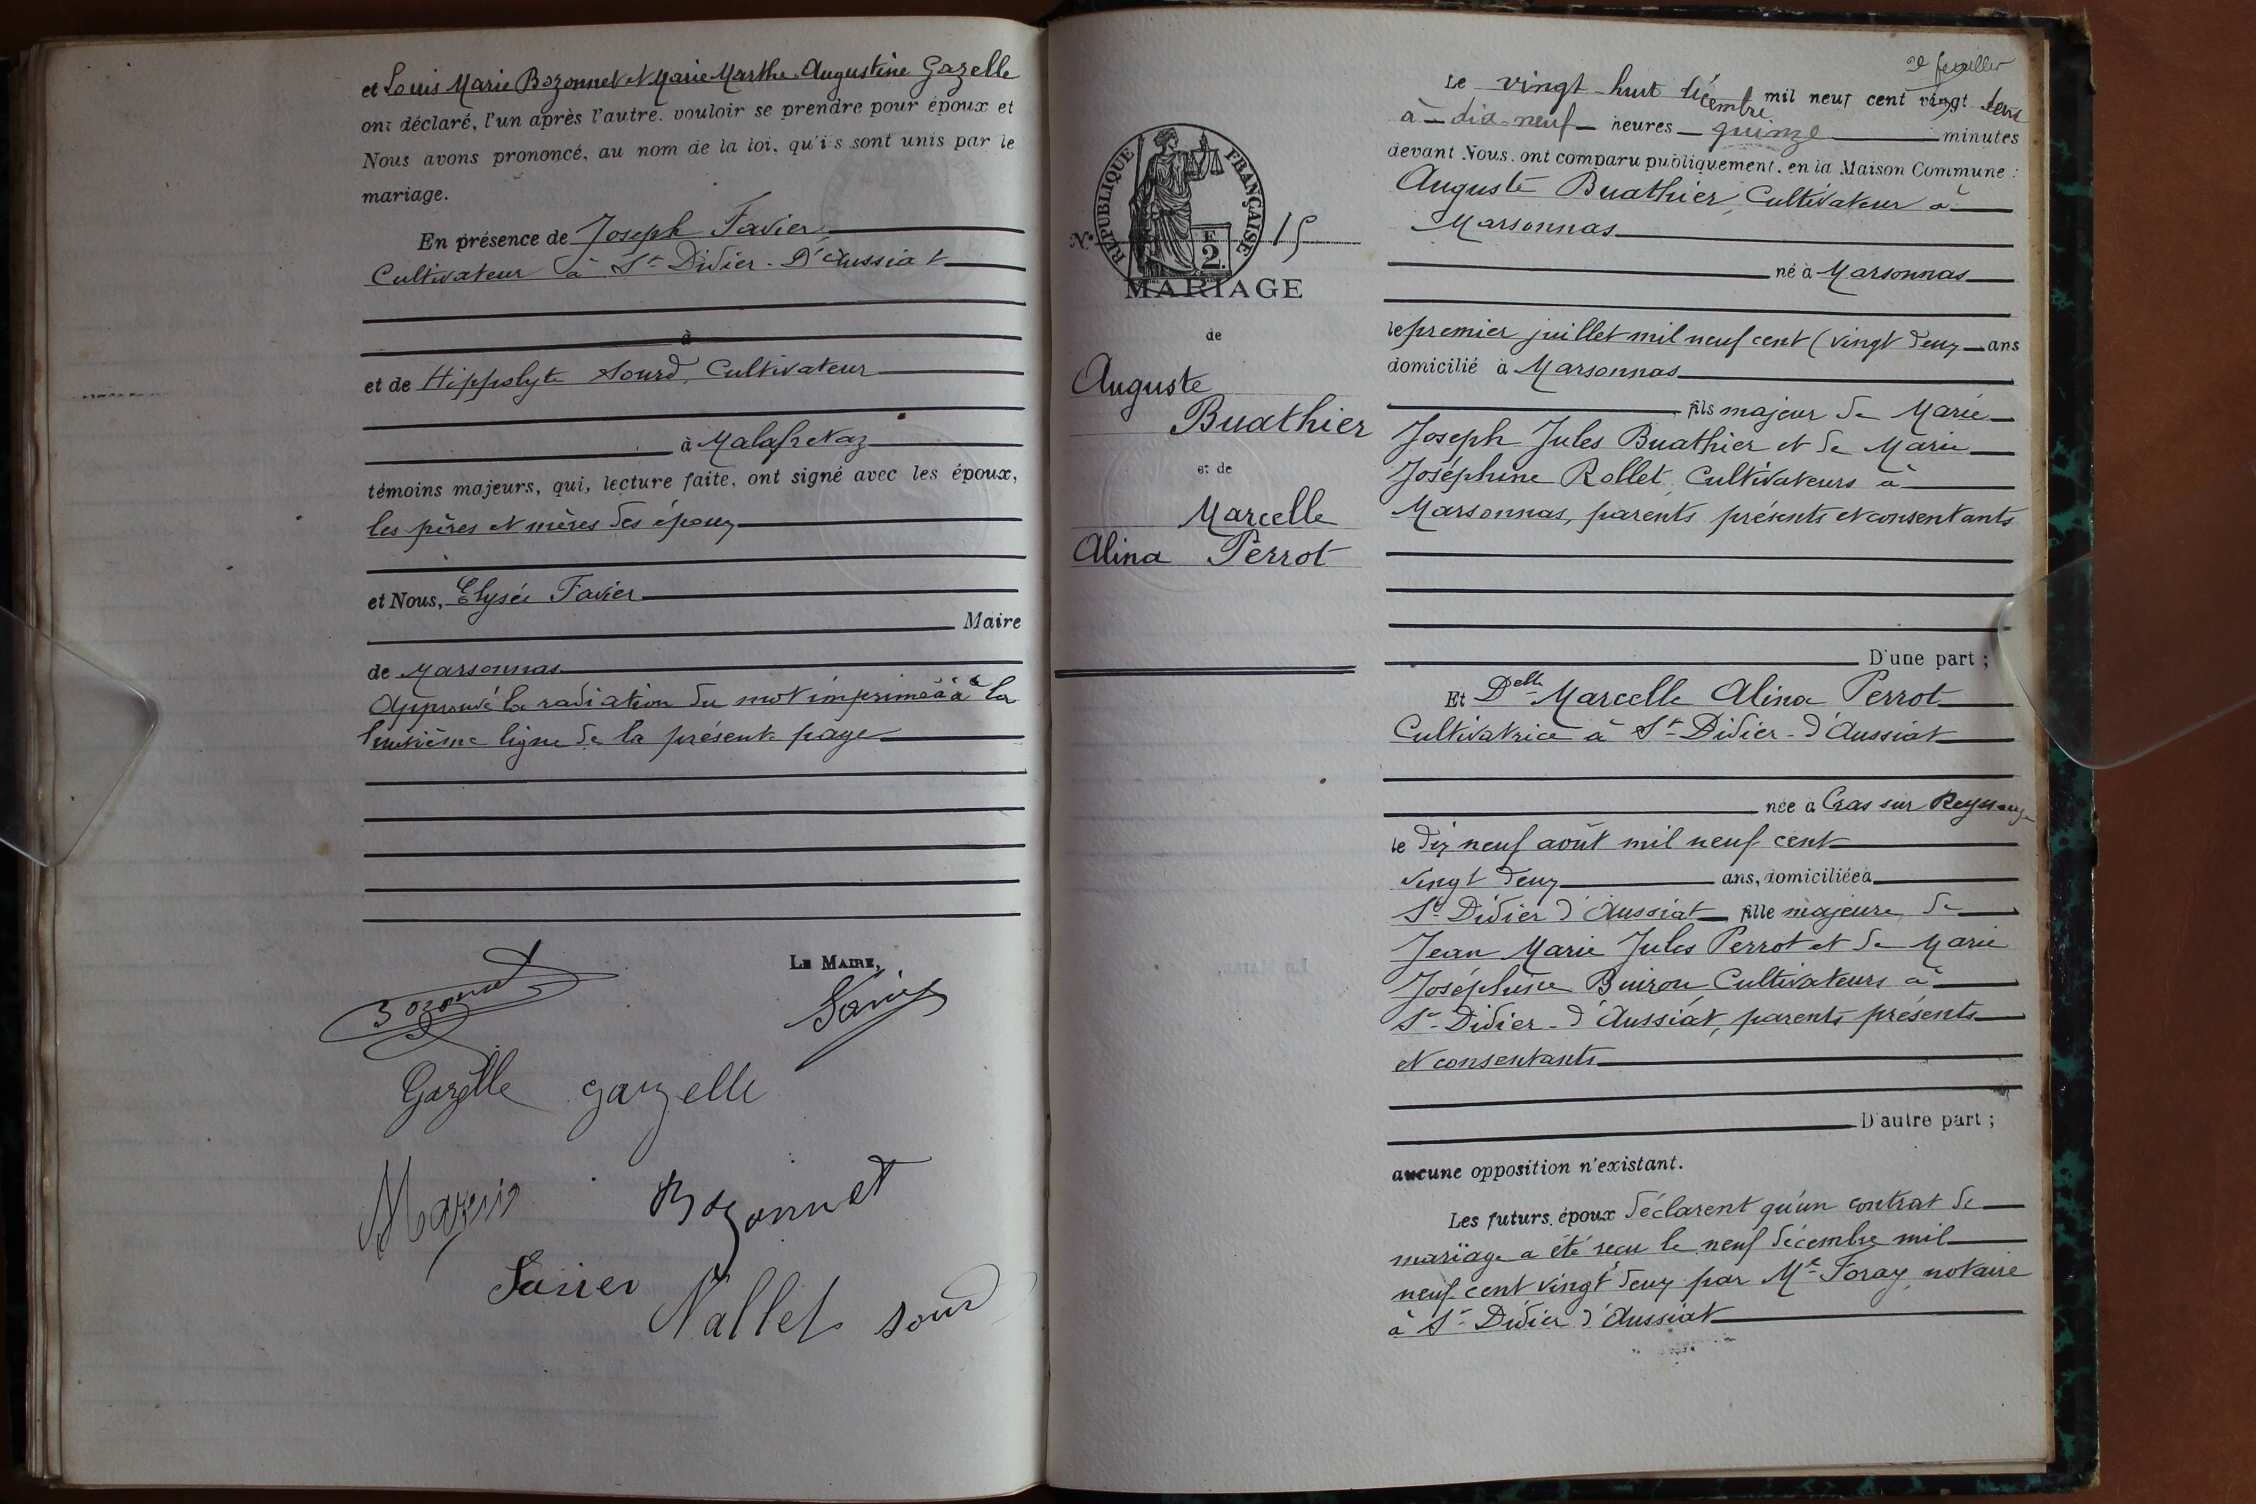 et Louis Marie Bozonnet et Marie Marthe Augustine Gazelle
ont déclaré, l'un après l'autre. vouloir se prendre pour époux et
Nous avons prononcé, au nom de la loi, qu'ils sont unis par le
mariage.
En présence de Joseph Favier
Cultivateur à St Didier-D'Aussiat
à
et de Hippolyte Sourd, Cultivateur
à Malafretaz
témoins majeurs, qui, lecture faite, ont signé avec les époux,
les pères et mères des époux
et Nous, Elysée Favier
Maire
de Marsonnas
Approuvé la radiation du mot imprimé à à la
huitième ligne de la présente page
LE MAIRE,
Bozonnet
Favier
Gazelle gazelle
Bozonnet
Favier Nallet Sourd
2e feuillet
Le vingt-huit décembre mil neuf cent vingt deux
à dix-neuf heures quinze minutes
devant Nous, ont comparu publiquement, en la Maison Commune :
Auguste Buathier, Cultivateur à
Marsonnas
né à Marsonnas
le premier juillet mil neuf cent ( vingt deux ans
domicilié à Marsonnas
fils majeur de Marie
Joseph Jules Buathier et de Marie
Joséphine Rollet, Cultivateurs à
Marsonnas, parents présents et consentants
D'une part ;
Et Delle Marcelle Alina Perrot
Cultivatrice à St-Didier-d'Aussiat
née à Cras sur Reyssouze
le dix neuf août mil neuf cent
vingt deux ans, domiciliée à
St-Didier d'Aussiat fille majeure de
Jean Marie Jules Perrot et de Marie
Joséphine Buiron Cultivateurs à
St-Didier-d'Aussiat, parents présents
et consentants
D'autre part ;
aucune opposition n'existant.
Les futurs époux déclarent qu'un contrat de
mariage a été reçu le neuf décembre mil
neuf cent vingt deux par Me Foray, notaire
à St-Didier d'Aussiat
RÉPUBLIQUE FRANÇAISE
F
2.
N° 15
MARIAGE
de
Auguste
Buathier
et de
Marcelle
Alina Perrot